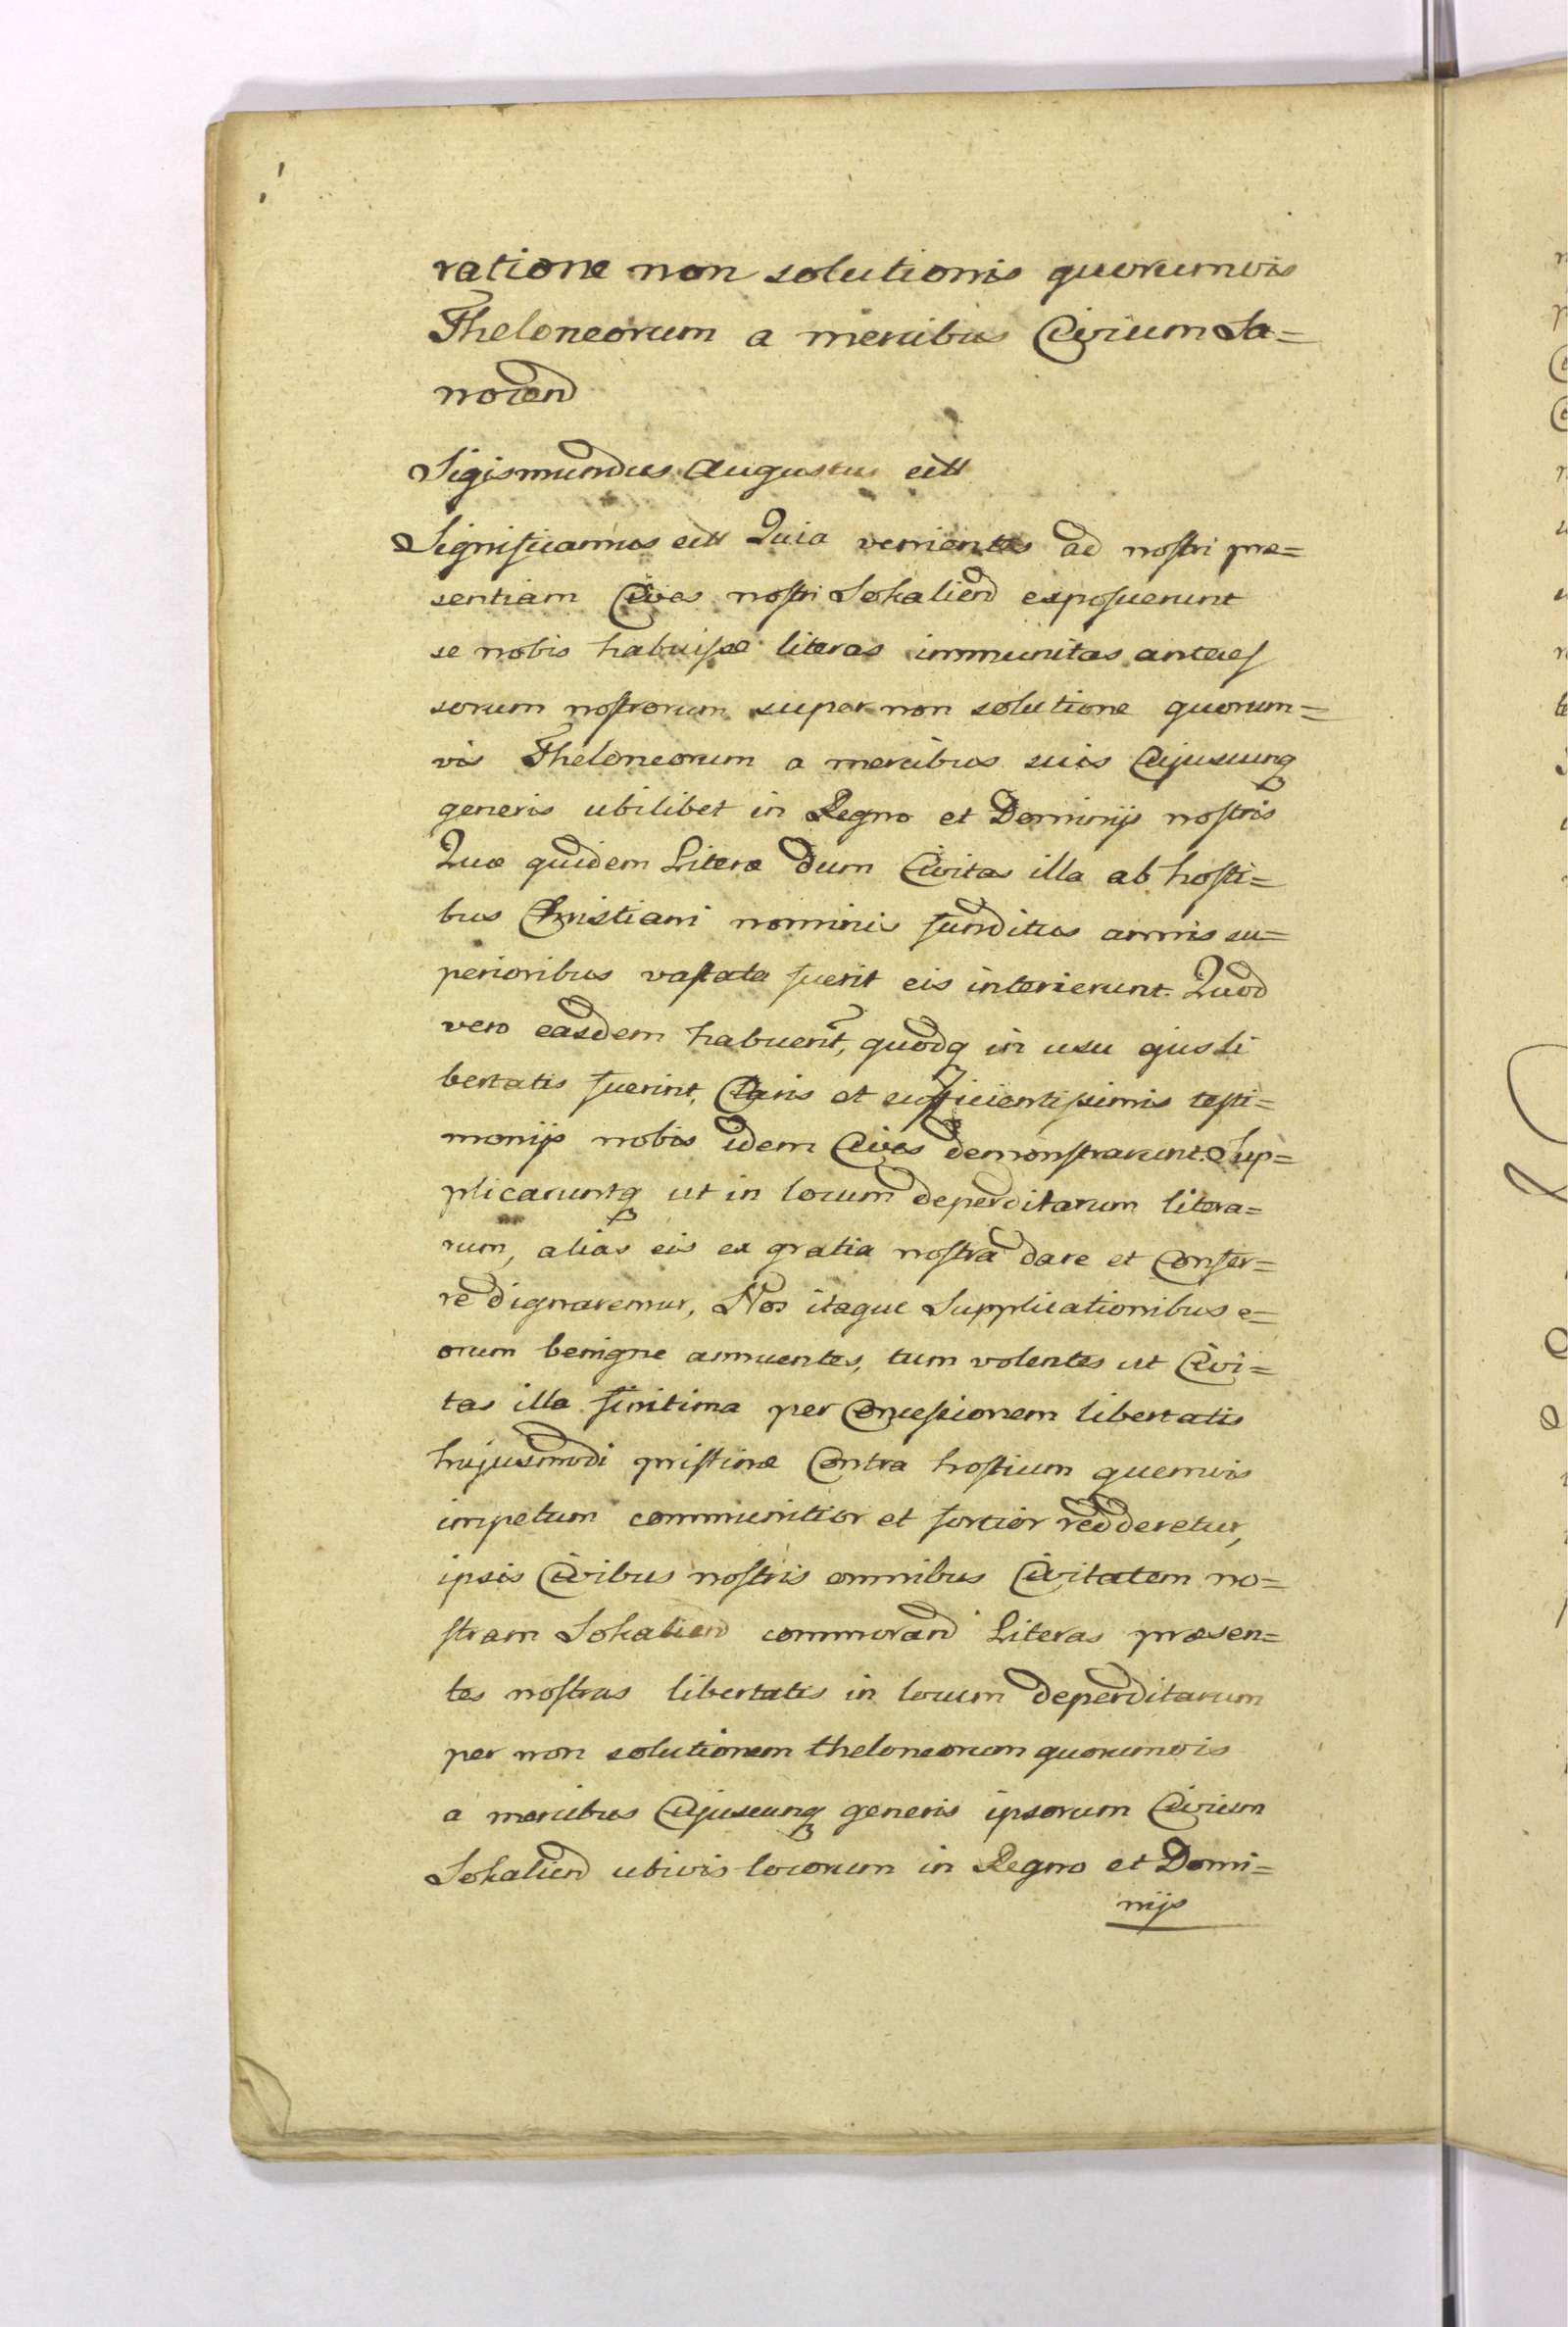 ratione non solutionis quorumvis
Theloneorum a mercibus Civium Sa=
nocend
Sigismundus Augustus ett
Significamus ett Quia venientes ad nostri præ=
sentiam Cives nostri Sokaliend exposuerunt
se nobis habuisse literas immunitas anteces
sorum nostrorum super non solutione quorum=
vis Theloneorum a mercibus suis Cujuscunq
generis ubilibet in Regno et Dominijs nostris
Quæ quidem Literæ dum Civitas illa ab hosti=
bus Christiani nominis funditus annis su=
perioribus vastata fuerit eis interierunt. Quod
vero easdem habuerint, quodq in usu ejus li
bertatis fuerint, Claris et sufficientissimis testi=
monijs nobis idem Cives demonstrarunt. Sup=
plicaruntq ut in locum deperditarum litera=
rum, alias eis ex gratia nostra dare et Confer=
re dignaremur, Nos itaque Supplicationibus e=
orum benigne annuentes, tum volentes ut Civi=
tas illa finitima per Concessionem libertatis
hujusmodi pristinæ Contra hostium quemvis
impetum communitior et fortior redderetur,
ipsis Civibus nostris omnibus Civitatem no=
stram Sokaliend commorand Literas præsen=
tes nostras libertatis in locum deperditarum
per non solutionem theloneorum quorumvis
a mercibus Cujuscunq generis ipsorum Civium
Sokaliend ubivis locorum in Regno et Domi=
nijs